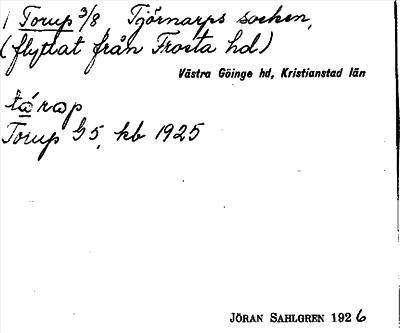 1 Torup 3/8 Tjörnarps socken,
(flyttat från Frosta hd)
Västra Göinge hd, Kristianstad län
tárap
Torup G5, kb 1925
JÖRAN SAHLGREN 1926